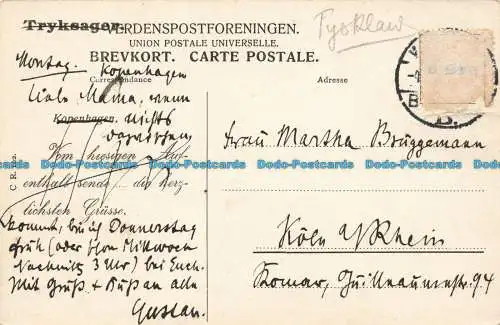 Tryksager. VERDENSPOSTFORENINGEN.
UNION POSTALE UNIVERSELLE.
BREVKORT. CARTE POSTALE.
Tyskland
Correspondance
Adresse
Montag. Kopenhagen
Liebe Mama, wenn
Kopenhagen, nichts
dazwischen
Vom hiesigen Auf-
enthalt sende die herz-
lichsten Grüsse.
kommt, bin ich Donnerstag
früh (oder schon Mittwoch
Nachmitt 3 Uhr) bei Euch.
Mit Gruß + Kuß an alle
Gustav.
Frau Martha Brüggemann
Köln a/Rhein
Komar, Guilleaumestr. 94
B.
Bodo-Postcards
Bodo-Postcards
Bodo-Postcards
Bodo-Postcards
Bodo-Postcards
Bodo-Postcards
Bodo-Postcards
Bodo-Postcards